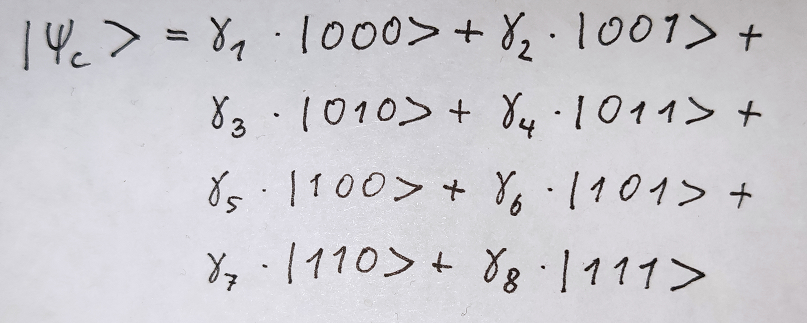 |Ψc> = γ1 · |000> + γ2 · |001> +
γ3 · |010> + γ4 · |011> +
γ5 · |100> + γ6 · |101> +
γ7 · |110> + γ8 · |111>